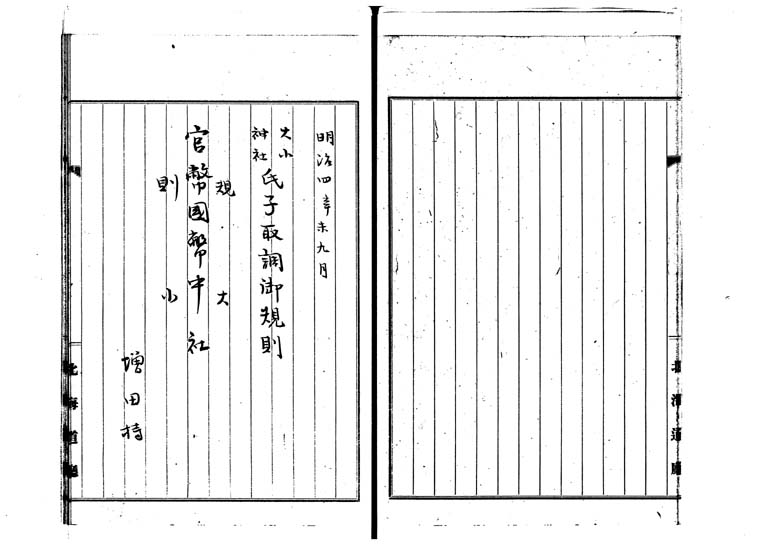 明治四辛未九月
大小神社氏子取調御規則
規則
官幣國幣大中小社
増田持
北海道廳
北海道廳